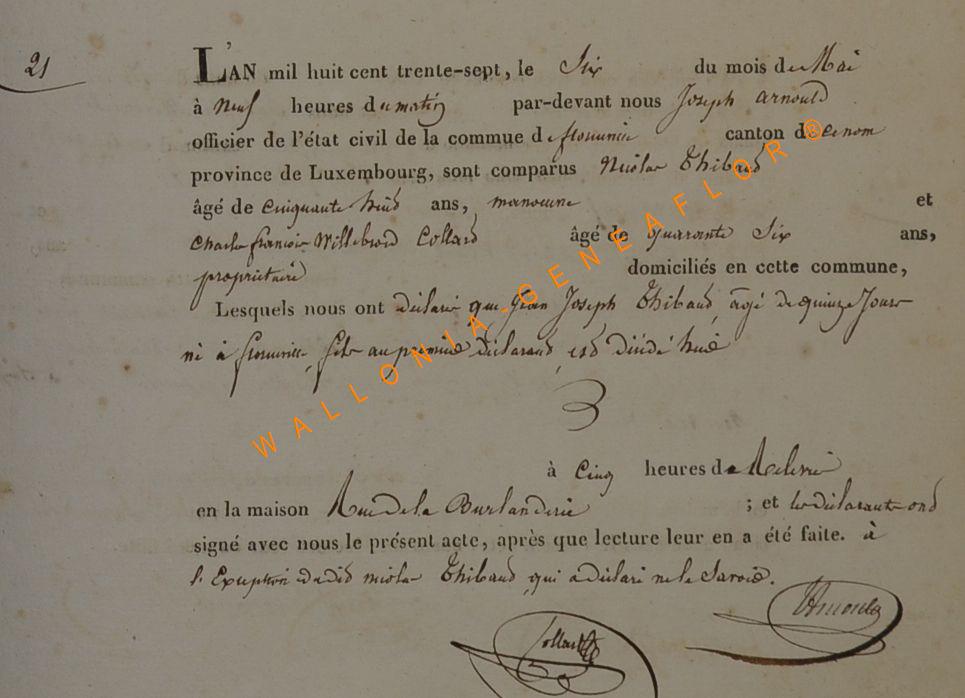 21
L'AN mil huit cent trente-sept, le Six du mois de Mai
à Neuf heures du matin par-devant nous Joseph Arnould
officier de l'état civil de la commue de florenville canton de
province de Luxembourg, sont comparus Nicolas Thibaud
âgé de cinquante huit ans, manœuvre et
Charles françois Willebrord Collard âgé de quarante Six ans,
propriétaire domiciliés en cette commune,
Lesquels nous ont déclaré que Jean Joseph Thibaud, âgé de quinze Jours
né à florenville, fils au premier déclarant, est décédé hier
à Cinq heures de Relevée
en la maison Rue de la ; et les déclarants ont
signé avec nous le présent acte, après que lecture leur en a été faite. à
l'Exception dudit nicolas Thibaud, qui a déclaré ne le Savoir.
Arnould
Collard
WALLONIA-GENEAFLOR®